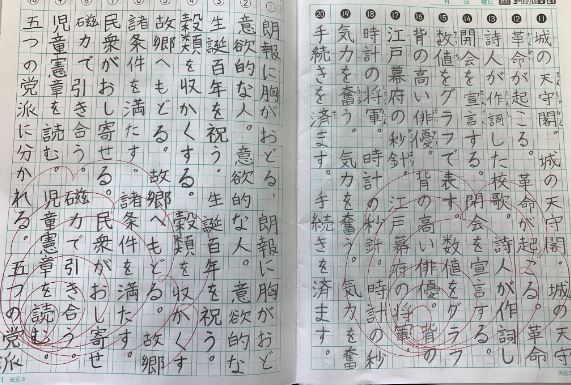 ⑪城の天守閣。城の天守閣。城の天
⑫革命が起こる。革命が起こる。革命
⑬詩人が作詞した校歌。詩人が作詞し
⑭開会を宣言する。開会を宣言する。
⑮数値をグラフで表す。数値をグラフ
⑯背の高い俳優。背の高い俳優。背の
⑰江戸幕府の秒針。江戸幕府の将軍。
⑱時計の将軍。時計の秒針。時計の秒
⑲気力を奮う。気力を奮う。気力を奮
⑳手続きを済ます。手続きを済ます。
①朗報に胸がおどる。朗報に胸がおど
②意欲的な人。意欲的な人。意欲的な
③生誕百年を祝う。生誕百年を祝う。
④穀類を収かくする。穀類を収かくす
⑤故郷へもどる。故郷へもどる。故郷
⑥諸条件を満たす。諸条件を満たす。
⑦民衆がおし寄せる。民衆がおし寄せ
⑧磁力で引き合う。磁力で引き合う。
⑨児童憲章を読む。児童憲章を読む。
⑩五つの党派に分かれる。五つの党派